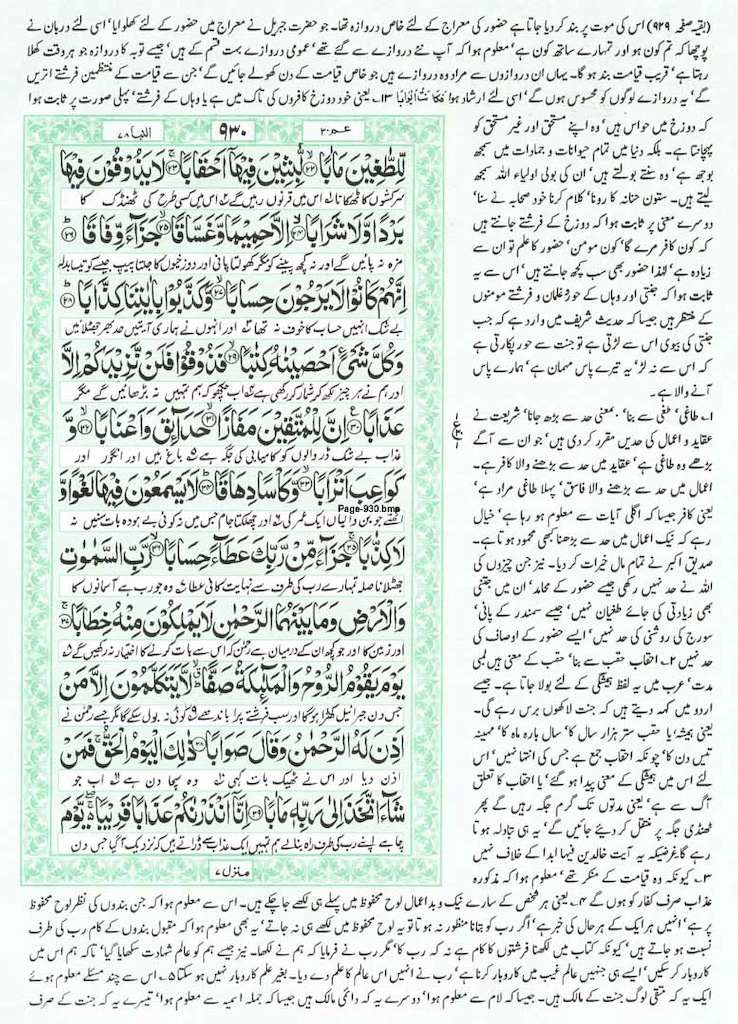 (بقیہ صفحہ ۹۲۹) اس کی موت پر بند کر دیا جاتا ہے حضور کی معراج کے لئے خاص دروازہ تھا۔ جو حضرت جبریل نے معراج میں حضور کے لئے کھلوایا' اسی لئے دربان نے
پوچھا کہ تم کون ہو اور تمہارے ساتھ کون ہے' معلوم ہوا کہ آپ نئے دروازے سے گئے تھے' عمومی دروازے بہت قسم کے ہیں' جیسے توبہ کا دروازہ جو ہر وقت کھلا
رہتا ہے' قریب قیامت بند ہو گا۔ یہاں ان دروازوں سے مراد وہ دروازے ہیں جو خاص قیامت کے دن کھولے جائیں گے' جن سے قیامت کے منتظمین فرشتے اتریں
گے' یہ دروازے لوگوں کو محسوس ہوں گے' اسی لئے ارشاد ہوا فَكَانَتْ اَبْوَابًا ۱۳۔ یعنی خود دوزخ کافروں کی تاک میں ہے یا وہاں کے فرشتے' پہلی صورت پر ثابت ہوا
عم ۳۰
۹۳۰
النبا ۷۸
لِّلطَّاغِيْنَ مَاٰبًا ۙ۲۲ لّٰبِثِيْنَ فِيْهَاۤ اَحْقَابًا ۚ۲۳ لَا يَذُوْقُوْنَ فِيْهَا
سرکشوں کا ٹھکانا اس میں قرنوں رہیں گے اس میں کسی طرح کی ٹھنڈک کا
بَرْدًا وَّلَا شَرَابًا ۙ۲۴ اِلَّا حَمِيْمًا وَّغَسَّاقًا ۙ۲۵ جَزَآءً وِّفَاقًا ؕ۲۶
مزہ نہ پائیں گے اور نہ کچھ پینے کو مگر کھولتا پانی اور دوزخیوں کا جلتا پیپ جیسے کو تیسا بدلہ
اِنَّهُمْ كَانُوْا لَا يَرْجُوْنَ حِسَابًا ۙ۲۷ وَّكَذَّبُوْا بِاٰيٰتِنَا كِذَّابًا ؕ۲۸
بے شک انہیں حساب کا خوف نہ تھا اور انہوں نے ہماری آیتیں حد بھر جھٹلائیں
وَكُلَّ شَيْءٍ اَحْصَيْنٰهُ كِتٰبًا ۙ۲۹ فَذُوْقُوْا فَلَنْ نَّزِيْدَكُمْ اِلَّا
اور ہم نے ہر چیز لکھ کر شمار کر رکھی ہے اب چکھو کہ ہم تمہیں نہ بڑھائیں گے مگر
عَذَابًا ۠۳۰ اِنَّ لِلْمُتَّقِيْنَ مَفَازًا ۙ۳۱ حَدَآئِقَ وَاَعْنَابًا ۙ۳۲ وَّ
عذاب بے شک ڈر والوں کو کامیابی کی جگہ ہے باغ ہیں اور انگور اور
كَوَاعِبَ اَتْرَابًا ۙ۳۳ وَّكَاْسًا دِهَاقًا ؕ۳۴ لَا يَسْمَعُوْنَ فِيْهَا لَغْوًا وَّ
Page-930.bmp
اٹھتے جوبن والیاں ایک عمر کی اور چھلکتا جام جس میں نہ کوئی بے ہودہ بات سنیں نہ
لَا كِذّٰبًا ۚ۳۵ جَزَآءً مِّنْ رَّبِّكَ عَطَآءً حِسَابًا ۙ۳۶ رَّبِّ السَّمٰوٰتِ
جھٹلانا صلہ تمہارے رب کی طرف سے نہایت کافی عطا وہ جو رب ہے آسمانوں کا
وَالْاَرْضِ وَمَا بَيْنَهُمَا الرَّحْمٰنِ لَا يَمْلِكُوْنَ مِنْهُ خِطَابًا ۚ۳۷
اور زمین کا اور جو کچھ ان کے درمیان ہے رحمٰن کہ اس سے بات کرنے کا اختیار نہ رکھیں گے
يَوْمَ يَقُوْمُ الرُّوْحُ وَالْمَلٰٓئِكَةُ صَفًّا ۙۗ لَّا يَتَكَلَّمُوْنَ اِلَّا مَنْ
جس دن جبرائیل کھڑا ہوگا اور سب فرشتے پرا باندھے کوئی نہ بول سکے گا مگر جسے رحمٰن نے
اَذِنَ لَهُ الرَّحْمٰنُ وَقَالَ صَوَابًا ۳۸ ذٰلِكَ الْيَوْمُ الْحَقُّ ۚ فَمَنْ
اذن دیا اور اس نے ٹھیک بات کہی وہ سچا دن ہے اب جو
شَآءَ اتَّخَذَ اِلٰى رَبِّهٖ مَاٰبًا ۳۹ اِنَّاۤ اَنْذَرْنٰكُمْ عَذَابًا قَرِيْبًا ۚۖ يَّوْمَ
چاہے اپنے رب کی طرف راہ بنا لے ہم تمہیں ایک عذاب سے ڈراتے ہیں کہ نزدیک آگیا جس دن
منزل ۷
کہ دوزخ میں حواس ہیں' وہ اپنے مستحق اور غیر مستحق کو
پہچانتا ہے۔ بلکہ دنیا میں تمام حیوانات و جمادات میں سمجھ
بوجھ ہے' وہ سنتے بولتے ہیں' ان کی بولی اولیاء اللہ سمجھ
لیتے ہیں۔ ستون حنانہ کا رونا' کلام کرنا خود صحابہ نے سنا'
دوسرے معنی پر ثابت ہوا کہ دوزخ کے فرشتے جانتے ہیں
کہ کون کافر مرے گا' کون مومن' حضور کا علم تو ان سے
زیادہ ہے' لہٰذا حضور بھی سب کچھ جانتے ہیں' اس سے یہ
ثابت ہوا کہ جنتی اور وہاں کے حور غلمان و فرشتے مومنوں
کے منتظر ہیں جیسا کہ حدیث شریف میں وارد ہے کہ جب
جنتی کی بیوی اس سے لڑتی ہے تو جنت سے حور پکارتی ہے
کہ اس سے نہ لڑ' یہ تیرے پاس مہمان ہے' ہمارے پاس
آنے والا ہے۔
۱۔ طاغی' طغی سے بنا' معنی حد سے بڑھ جانا' شریعت نے
عقاید و اعمال کی حدیں مقرر کر دی ہیں' جو ان سے آگے
بڑھے وہ طاغی ہے' عقاید میں حد سے بڑھنے والا کافر ہے۔
اعمال میں حد سے بڑھنے والا فاسق' پہلا طاغی مراد ہے'
یعنی کافر جیسا کہ اگلی آیات سے معلوم ہو رہا ہے' خیال
رہے کہ نیک اعمال میں حد سے بڑھنا بھی محمود ہوتا ہے۔
صدیق اکبر نے تمام مال خیرات کر دیا۔ نیز جن چیزوں کی
اللہ نے حد نہیں رکھی جیسے حضور کے محامد' ان میں جتنی
بھی زیادتی کی جائے طغیان نہیں' جیسے سمندر کے پانی'
سورج کی روشنی کی حد نہیں' ایسے حضور کے اوصاف کی
حد نہیں ۲۔ احقاب حقب سے بنا' حقب کے معنی ہیں لمبی
مدت' عرب میں یہ لفظ ہمیشگی کے لئے بولا جاتا ہے۔ جیسے
اردو میں کہہ دیتے ہیں کہ جنت لاکھوں برس رہے گی۔
یعنی ہمیشہ' یا حقب ستر ہزار سال کا' سال بارہ ماہ کا' مہینہ
تیس دن کا' چونکہ احقاب جمع ہے جس کی انتہا نہیں' اس
لئے اس میں ہمیشگی کے معنی پیدا ہو گئے' یا احقاب کا تعلق
آگ سے ہے' یعنی مدتوں تک گرم جگہ رہیں گے پھر
ٹھنڈی جگہ پر منتقل کر دیئے جائیں گے' یہ ہی تبادلہ ہوتا
رہے گا غرضیکہ یہ آیت خالدین فیھا ابدا کے خلاف نہیں
۳۔ کیونکہ وہ قیامت کے منکر تھے' معلوم ہوا کہ مذکورہ
عذاب صرف کفار کو ہوں گے ۴۔ یعنی ہر شخص کے سارے نیک و بد اعمال لوح محفوظ میں پہلے ہی لکھے جا چکے ہیں۔ اس سے معلوم ہوا کہ جن بندوں کی نظر لوح محفوظ
پر ہے' انہیں ہر ایک کے ہر حال کی خبر ہے' اگر رب کو بتانا منظور نہ ہوتا تو یہ لوح محفوظ میں لکھے ہی نہ جاتے' یہ بھی معلوم ہوا کہ مقبول بندوں کے کام رب کی طرف
نسبت ہو جاتے ہیں' کیونکہ کتاب میں لکھنا فرشتوں کا کام ہے نہ کہ رب کا' مگر رب نے فرمایا کہ ہم نے لکھا۔ نیز جیسے ہم کو عالم شہادت سکھایا گیا' تاکہ ہم اس میں
کاروبار کر سکیں' ایسے ہی جنہیں عالم غیب میں کاروبار کرنا ہے' رب نے انہیں اس عالم کا علم دے دیا۔ بغیر علم کاروبار نہیں ہو سکتا ۵۔ اس سے چند مسئلے معلوم ہوئے
ایک یہ کہ متقی لوگ جنت کے مالک ہیں۔ جیسا کہ لام سے معلوم ہوا' دوسرے یہ کہ دائمی مالک ہیں جیسا کہ جملہ اسمیہ سے معلوم ہوا' تیسرے یہ کہ جنت کے صرف